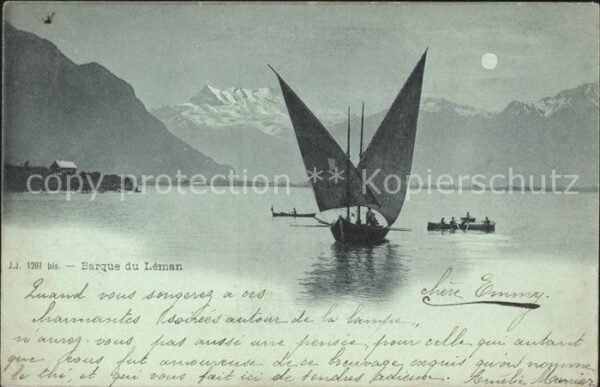 ** copy protection ** Kopierschutz **
J.J. 1207 bis. — Barque du Léman
chère Emmy.
Quand vous songerez à ces
charmantes soirées autour de la lampe,
n'aurez-vous, pas aussi une pensée, pour celle qui autant
que vous fut amoureuse de ce breuvage exquis qu'on nomme
le thé, et qui vous fait ici de tendres adieux. Amélie